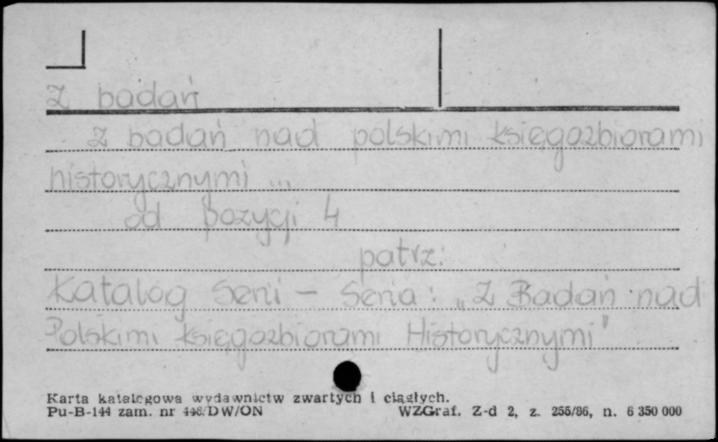 Z badań
Z badań nad polskimi księgozbiorami
historycznymi ...
od pozycji 4
patrz:
Katalog Serii – Seria: „Z Badań nad
Polskimi Księgozbiorami Historycznymi"
Karta katalogowa wydawnictw zwartych i ciągłych.
Pu-B-144 zam. nr 446/DW/ON WZGraf. Z-d 2, z. 255/86, n. 6 350 000